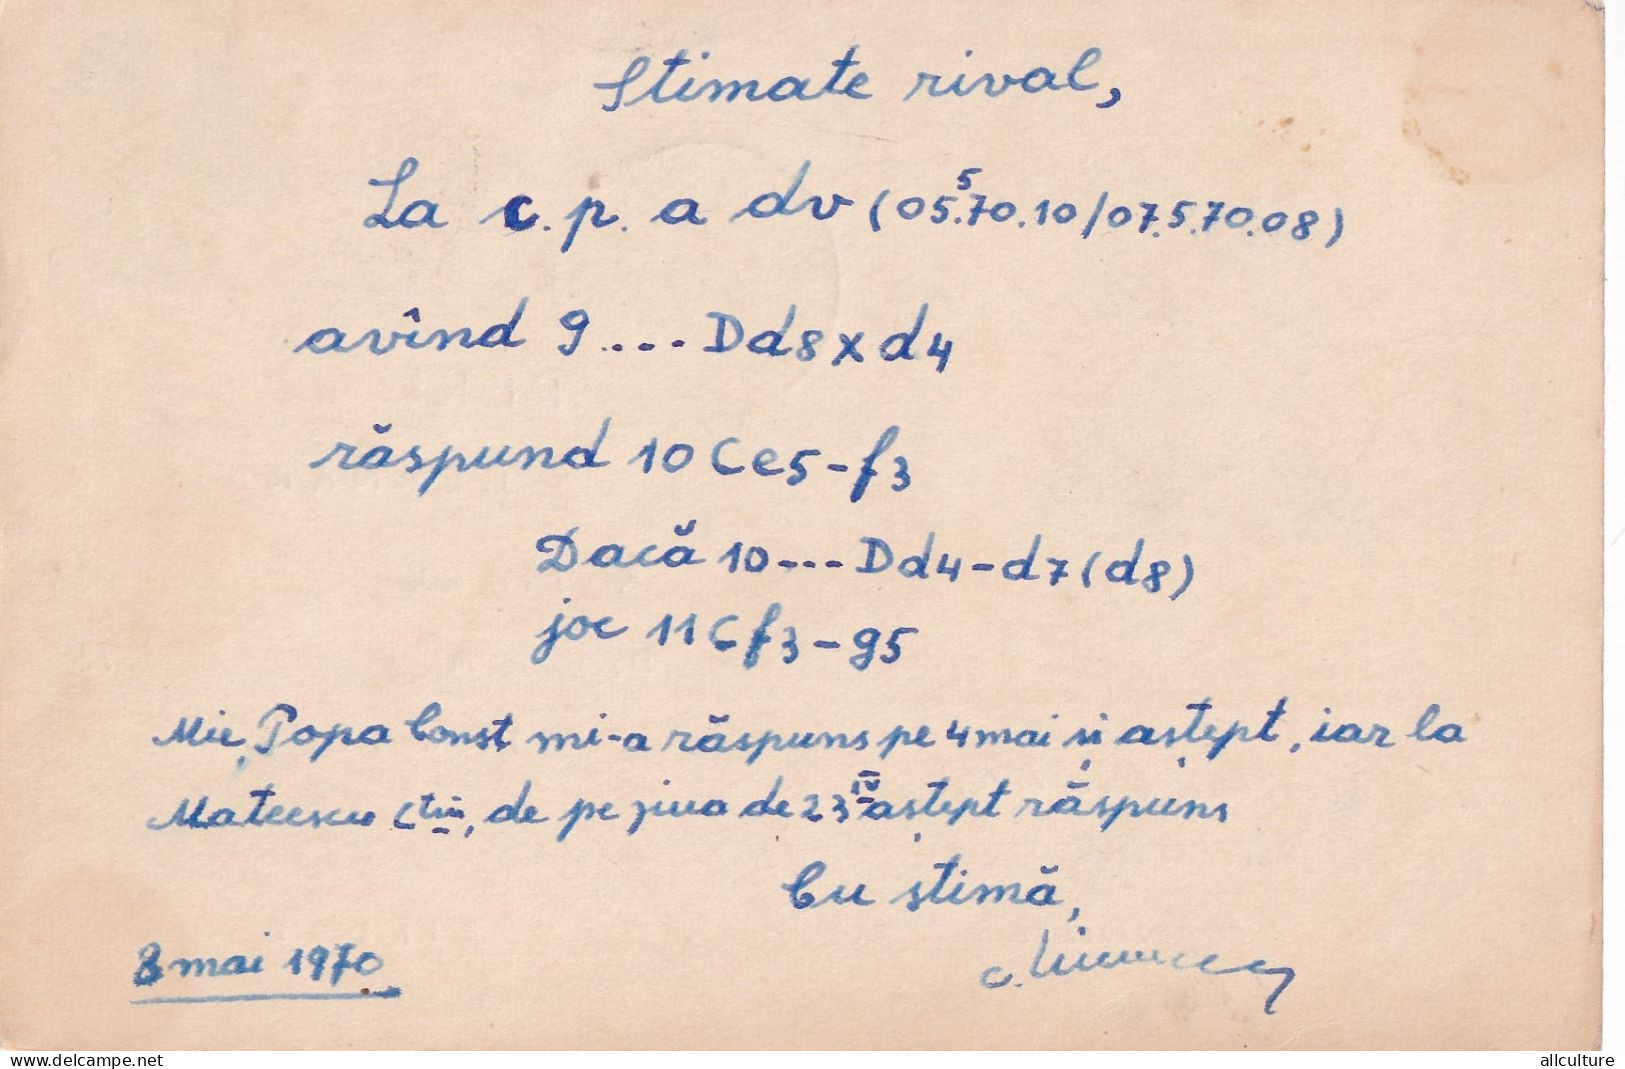 Stimate rival,
La c. p. a dv (05.5.70.10/07.5.70.08)
avînd 9 .... Dd8xd4
răspund 10 Ce5-f3
Dacă 10 .... Dd4-d7 (d8)
joc 11 Cf3-g5
Mie, Popa Const mi-a răspuns pe 4 mai și aștept, iar la
Mateescu Ctin, de pe ziua de 23 IV aștept răspuns
Cu stimă,
8 mai 1970
www.delcampe.net
allculture